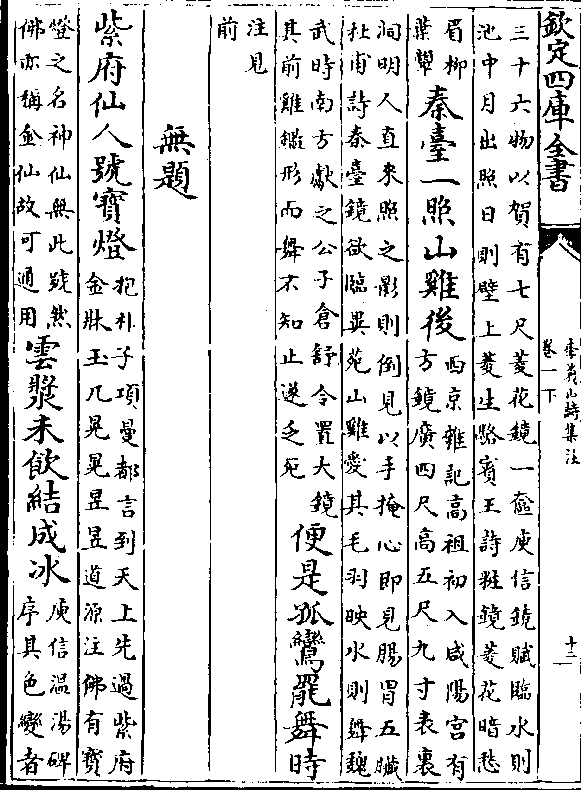 欽定四庫全書
李義山詩集注
卷一下
十二
三十六物以賀有七尺菱花鏡一奩庾信鏡賦臨水則
池中月出照日則壁上菱生駱賓王詩粧鏡菱花暗愁
眉柳
葉顰
秦臺一照山雞後
西京雜記高祖初入咸陽宫有
方鏡廣四尺高五尺九寸表裏
洞明人直來照之影則倒見以手掩心即見腸胃五臟
杜甫詩秦臺鏡欲臨異苑山雞愛其毛羽映水則舞魏
武時南方獻之公子倉舒令置大鏡
其前雞鑑形而舞不知止遂乏死
便是孤鸞罷舞時
注見
前
無題
紫府仙人號寶燈
抱朴子項曼都言到天上先過紫府
金牀玉几晃晃昱昱道源注佛有寶
燈之名神仙無此號然
佛亦稱金仙故可通用
雲漿未飲結成冰
庾信温湯碑
序其色變者